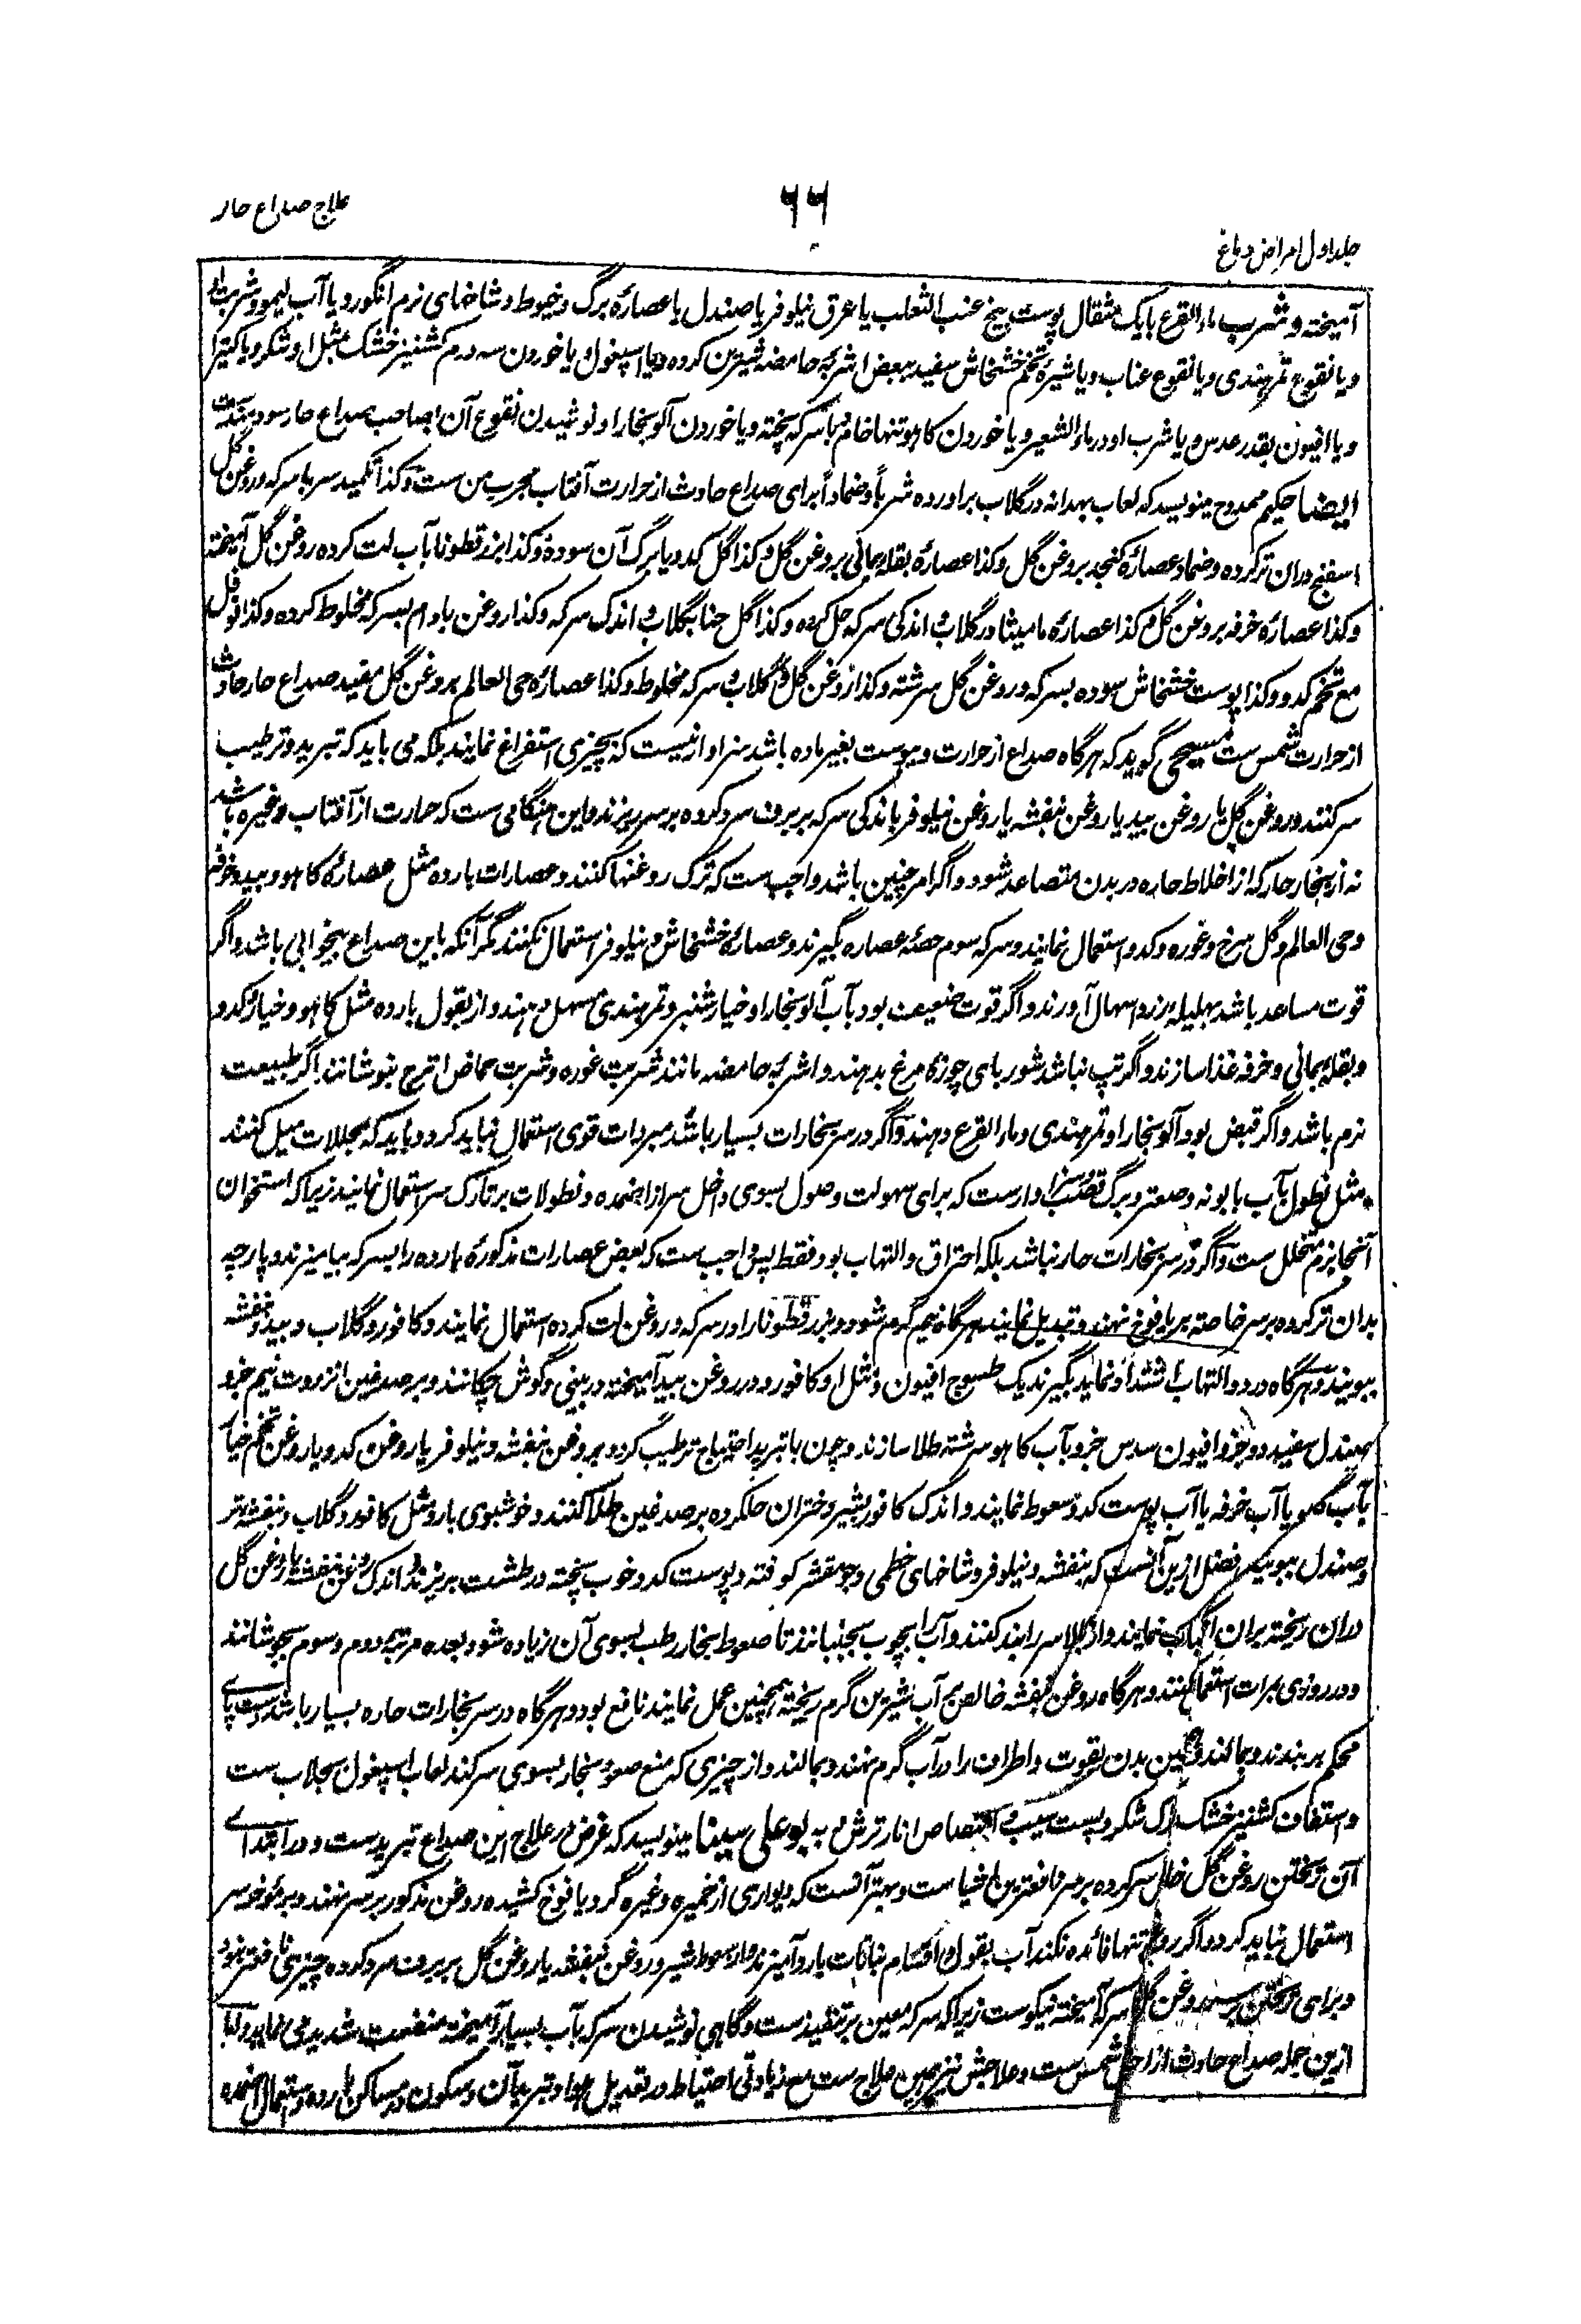 علاج صداع حار
۶۶
جلد اول امراض دماغ
آمیخته و شرب ماء القرع با یک مثقال پوست بیخ عنب الثعلب یا عرق نیلوفر یا صندل یا عصارهٔ برگ و خیوط و شاخهای نرم انگور و یا آب لیمو و شربت او
و یا نقوع تمر هندی و یا نقوع عناب و یا شیرهٔ تخم خشخاش سفید ببعض اشربهٔ حامضه شیرین کرده و یا اسپغول و یا خوردن سه درم کشنیز خشک بمثل او شکر و یا کتیرا
و یا افیون بقدر عدس و یا شرب او در ماء الشعیر و یا خوردن کاهو تنها خام یا با سرکه پخته و یا خوردن آلو بخارا و نوشیدن نقوع آن بصاحب صداع حار سودمندست
ایضا حکیم ممدوح مینویسد که لعاب بهدانه در گلاب برآورده شرباً و ضماداً برای صداع حادث از حرارت آفتاب مجرب من ست و کذا تکمید سر با سرکه و روغن گل
اسفنج دران تر کرده و ضماد عصارهٔ کنجد بروغن گل و کذا عصارهٔ بقله یمانی بروغن گل و کذا گل کدو یا برگ آن سوده و کذا بزر قطونا بآب لت کرده روغن گل آمیخته
و کذا عصارهٔ خرفه بروغن گل و کذا عصارهٔ مامیثا در گلاب و اندکی سرکه حل کرده و کذا گل حنا بگلاب و اندک سرکه و کذا روغن بادام بسرکه مخلوط کرده و کذا فوفل
مع تخم کدو و کذا پوست خشخاش سوده بسرکه و روغن گل سرشته و کذا روغن گل و گلاب و سرکه مخلوط و کذا عصارهٔ حی العالم بروغن گل مفید صداع حار حادث
از حرارت شمس ست مسیحی گوید که هرگاه صداع از حرارت و یبوست بغیر ماده باشد سزاوار نیست که بچیزی استفراغ نمایند بلکه می باید که تبرید و ترطیب
سر کنند و روغن گل یا روغن بید یا روغن بنفشه یا روغن نیلوفر باندکی سرکه بر برف سرد کرده بر سر ریزند و این هنگامی ست که حرارت از آفتاب و غیره باشد
نه از بخار حار که از اخلاط حاره در بدن متصاعد شود و اگر امر چنین باشد واجب ست که ترک روغنها کنند و عصارات بارده مثل عصارهٔ کاهو و بید و خرفه
و حی العالم و گل سرخ و غوره و کدو استعمال نمایند و سرکه سوم حصهٔ عصاره بگیرند و عصارهٔ خشخاش و نیلوفر استعمال نکنند مگر آنکه باین صداع بیخوابی باشد و اگر
قوت مساعد باشد بهلیله زرد اسهال آورند و اگر قوت ضعیف بود بآب آلو بخارا و خیار شنبر و تمر هندی مسهل دهند و از بقول بارده مثل کاهو و خیار و کدو
و بقله یمانی و خرفه غذا سازند و اگر تپ نباشد شوربای چوزهٔ مرغ بدهند و اشربهٔ حامضه مانند شربت غوره و شربت حماض اترج بنوشانند اگر طبیعت
نرم باشد و اگر قبض بود آلو بخارا و تمر هندی و ماء القرع دهند و اگر در سر بخارات بسیار باشد مبردات قوی استعمال نباید کرد و باید که بمحللات میل کنند
مثل نطول بآب بابونه و صعتر و برگ قصب و سزاوارست که برای سهولت وصول بسوی داخل سر از اضمده و نطولات بر تارک سر استعمال نمایند زیرا که استخوان
آنجا نرم متخلل ست و اگر در سر بخارات حار نباشد بلکه احتراق و التهاب بود فقط پس واجب ست که بعض عصارات مذکورهٔ بارده را بسرکه بیامیزند و پارچه
بدان تر کرده بر سر خاصته بر یافوخ نهند و تبدیل نمایند هرگاه نیم گرم شود و بزر قطونا را در سرکه و روغن لت کرده استعمال نمایند و کافور و گلاب و بید و بنفشه
ببویند و هرگاه درد و التهاب اشتداد نماید بگیرند یک طسوج افیون و مثل او کافور و در روغن بید آمیخته در بینی و گوش چکانند و بر صدغین انزروت نیم جزو
صندل سفید دو جزو افیون سدس جزو بآب کاهو سرشته طلا سازند و چون با تبرید احتیاج ترطیب گردد بروغن بنفشه و نیلوفر یا روغن کدو یا روغن تخم خیار
یا آب کاهو یا آب خرفه یا آب پوست کدو سعوط نمایند و اندک کافور بشیر دختران حل کرده بر صدغین طلا کنند و خوشبوی بارد مثل کافور و گلاب و بنفشه تر
و صندل ببویند و افضل ازین آنست که بنفشه و نیلوفر و شاخهای خطمی و جو مقشر کوفته و پوست کدو خوب پخته در طشت بریزند و اندک روغن بنفشه یا روغن گل
دران ریخته بران انکباب نمایند و از بالا سر را بند کنند و آب را بچوب بجنبانند تا صعود بخار رطب بسوی آن زیاده شود بعده مرتبه دوم و سوم بجوشانند
و در روزی بمرات استعمال کنند و هرگاه روغن بنفشه خالص بر آب شیرین گرم ریخته همچنین عمل نمایند نافع بود و هرگاه در سر بخارات حاره بسیار باشد دست و پای
محکم بر بندند و بمالند و همین بدن بقوت و اطراف را در آب گرم نهند و بمالند و از چیزی که منع صعود بخار بسوی سر کند لعاب اسپغول بجلاب ست
و استفاف کشنیز خشک شکر و پست سیب و امتصاص انار ترش و به بو علی سینا مینویسد که غرض در علاج این صداع تبریدست و در ابتدای
آن ریختن روغن گل خالص سرد کرده بر سر نافعترین اشیا ست و بهتر آنست که دیواری از خمیره و غیره گرد یافوخ کشیده روغن مذکور بر سر نهند و بر مؤخر سر
استعمال نباید کرد و اگر روغن تنها فائده نکند آب بقول و اقسام نباتات بارد آمیزند و از سعوط شیر و روغن بنفشه یا روغن گل بر برف سرد کرده چیزی نافعتر نبود
و برای ریختن بر سر روغن گل سرکه آمیخته نیکوست زیرا که سرکه معین بر تنفیذ ست و گاهی نوشیدن سرکه بآب بسیار آمیخته منفعت شدید می نماید و
ازین جمله صداع حادث از شمس ست و علاجش نیز همین علاج ست مع زیادتی احتیاط در تعدیل هوا و تبرید آن و سکون در مساکن بارده و استعمال اضمده